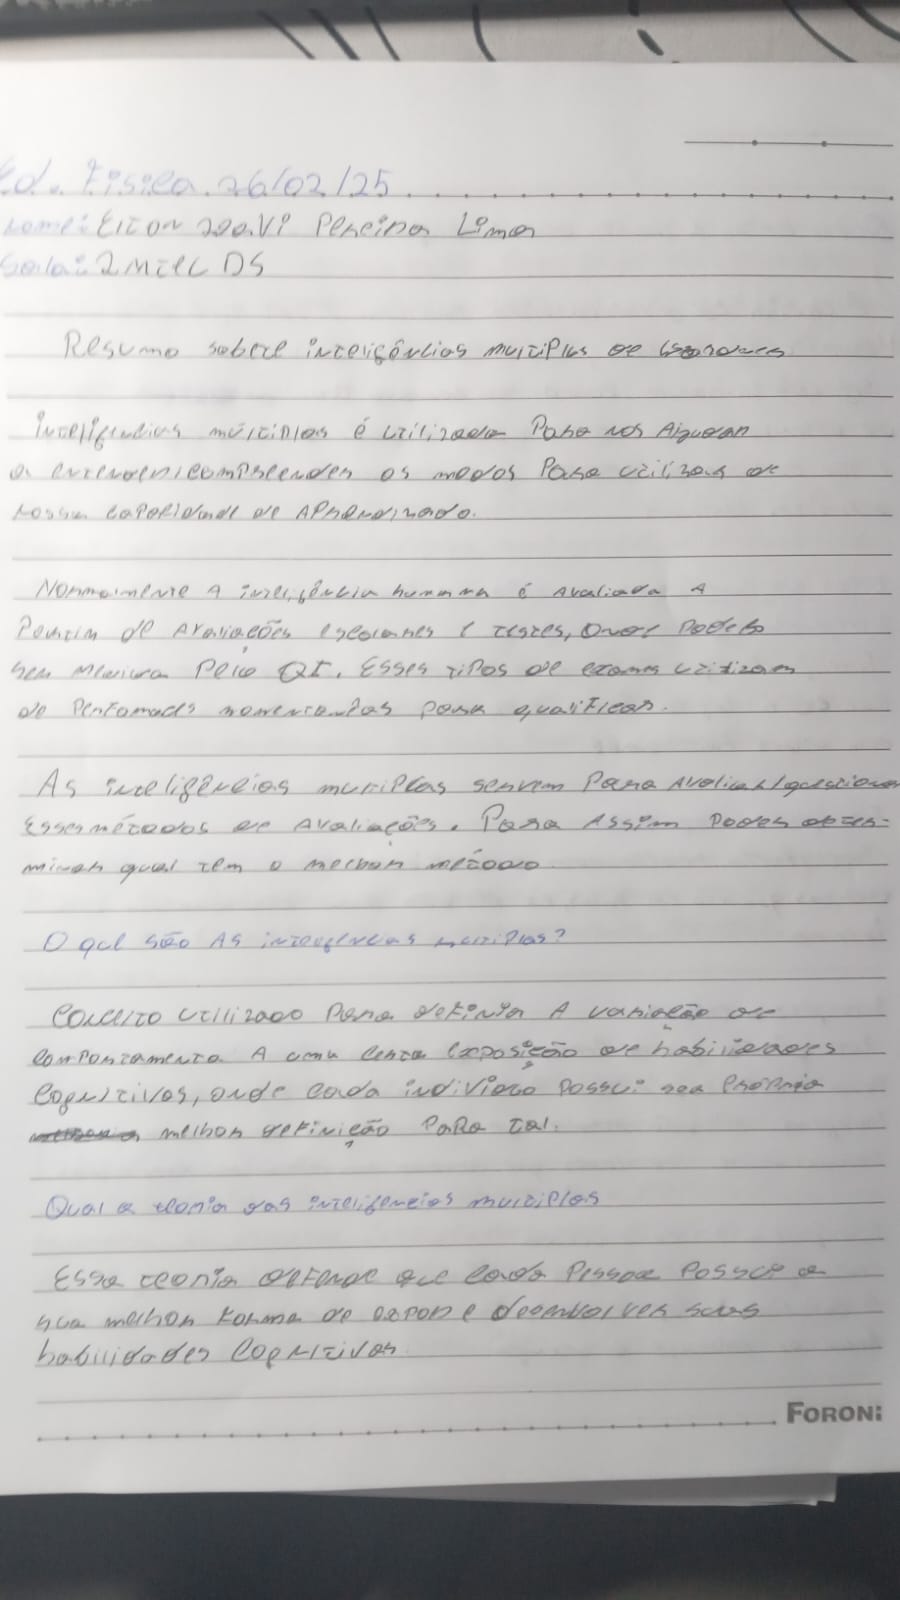 Ed. Física. 26/02/25
Nome: Pereira Lima
Sala: 2 MTEC DS
Resumo sobre inteligências multiplas de
Inteligencias múltiplas é utilizada Para nos Ajudar
a entender/compreender os modos Para utilizar de
nossa capacidade de Aprendizado.
Normalmente A inteligência humana é Avaliada A
Partir de Avaliações escolares e testes, onde Podeto
ser Pelo QI. Esses tipos de exames utilizam
de momentanêas para qualificar.
As inteligências multiplas servem Para Avaliar/questionar
Esses métodos de Avaliações. Para Assim Poder deter-
minar qual tem o melhor método
O que são As inteligencias multiplas?
Conceito utilizado Para definir A variação de
comportamento A uma certa exposição de habilidades
cognitivas, onde cada individo possui sua Própria
melhor definição PaRa tal.
Qual a teoria das inteligencias multiplas
Essa teoria defende que cada Pessoa Possui a
sua melhor forma de e desenvolver suas
habilidades cognitivas
FORONI